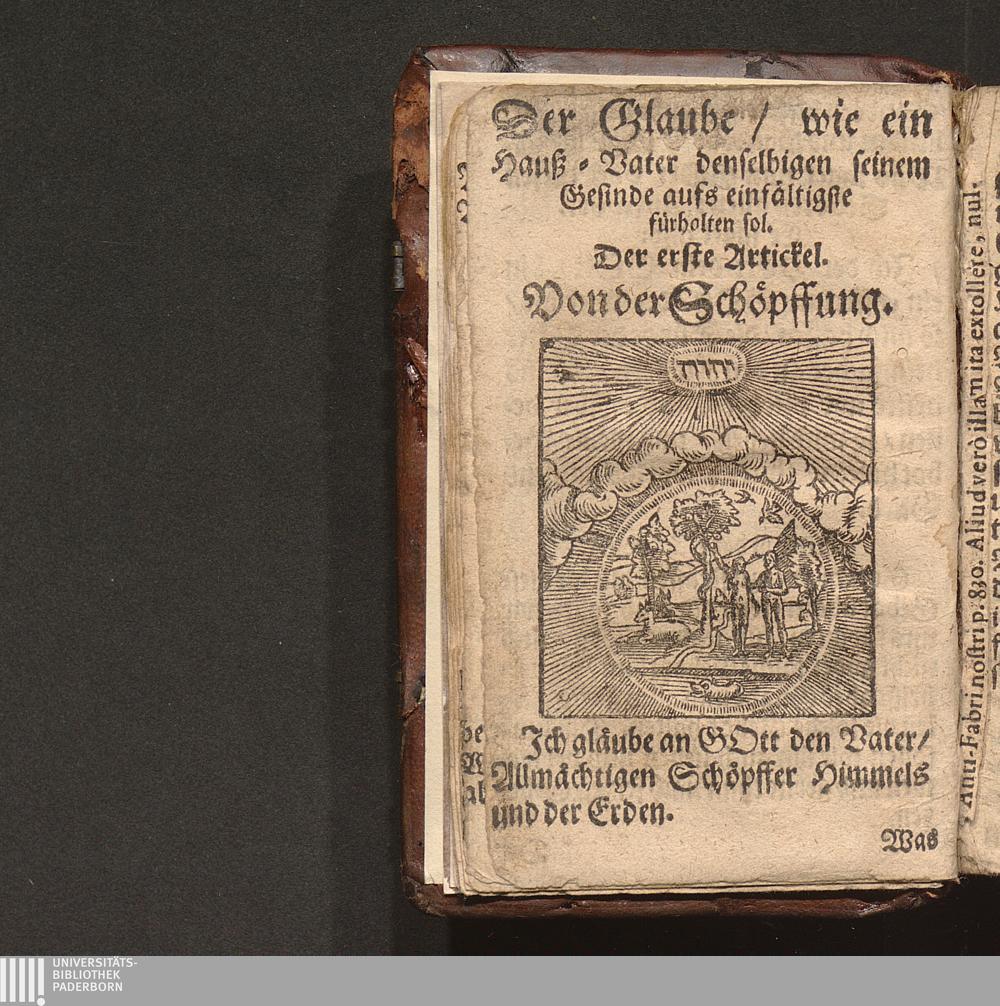 Der Glaube / wie ein
Hauß-Vater denselbigen seinem
Gesinde aufs einfältigste
fürhalten sol.
Der erste Artickel.
Von der Schöpffung.
יהוה
Ich gläube an GOtt den Vater/
Allmächtigen Schöpffer Himmels
und der Erden.
Was
Anti-Fabri nostri p. 830. Aliud verò illam ita extollere, nul-
UNIVERSITÄTS-
BIBLIOTHEK
PADERBORN